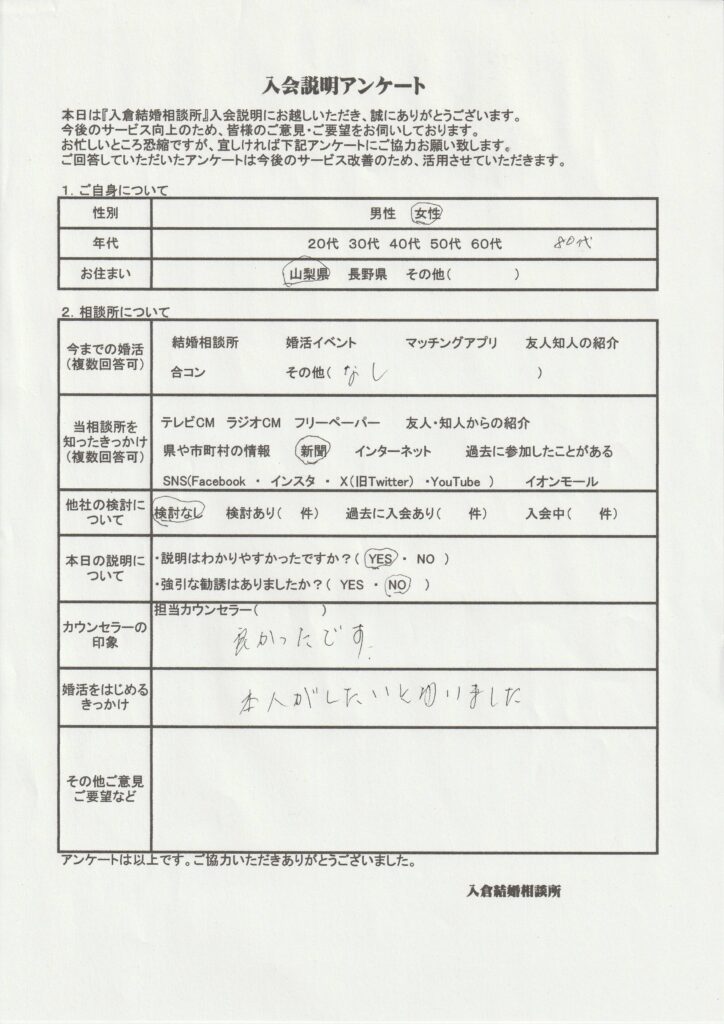 入会説明アンケート
本日は『入倉結婚相談所』入会説明にお越しいただき、誠にありがとうございます。
今後のサービス向上のため、皆様のご意見・ご要望をお伺いしております。
お忙しいところ恐縮ですが、宜しければ下記アンケートにご協力お願い致します。
ご回答していただいたアンケートは今後のサービス改善のため、活用させていただきます。
1. ご自身について
性別 男性 女性
年代 20代 30代 40代 50代 60代 80代
お住まい 山梨県 長野県 その他( )
2. 相談所について
今までの婚活
(複数回答可)
結婚相談所 婚活イベント マッチングアプリ 友人知人の紹介
合コン その他( なし )
当相談所を
知ったきっかけ
(複数回答可)
テレビCM ラジオCM フリーペーパー 友人・知人からの紹介
県や市町村の情報 新聞 インターネット 過去に参加したことがある
SNS(Facebook ・ インスタ ・ X(旧Twitter) ・YouTube ) イオンモール
他社の検討に
ついて
検討なし 検討あり( 件) 過去に入会あり( 件) 入会中( 件)
本日の説明に
ついて
・説明はわかりやすかったですか?( YES ・ NO )
・強引な勧誘はありましたか?( YES ・ NO )
カウンセラーの
印象
担当カウンセラー( )
良かったです.
婚活をはじめる
きっかけ
本人がしたいと りました
その他ご意見
ご要望など
アンケートは以上です。ご協力いただきありがとうございました。
入倉結婚相談所